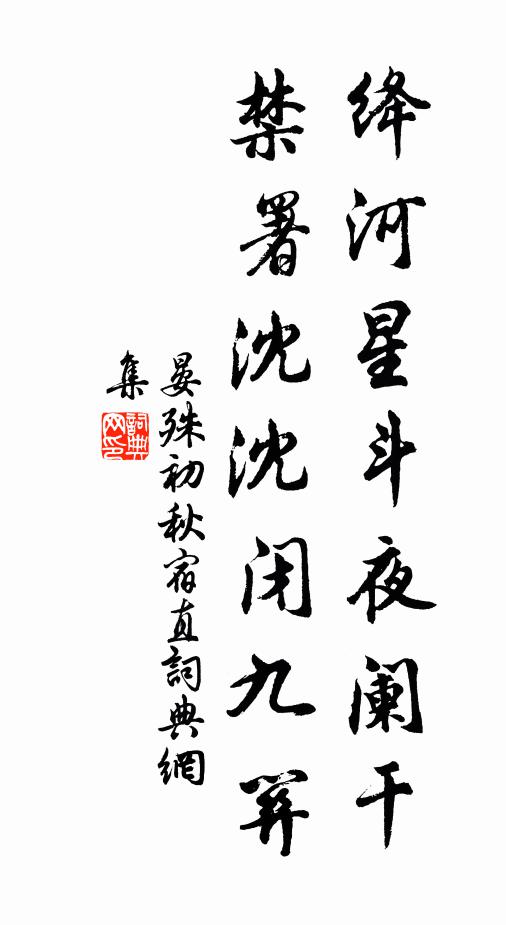 绛河星斗夜澜干
禁署沈沈闭九関
晏殊初秋宿直詞典網
集
詞典
网印